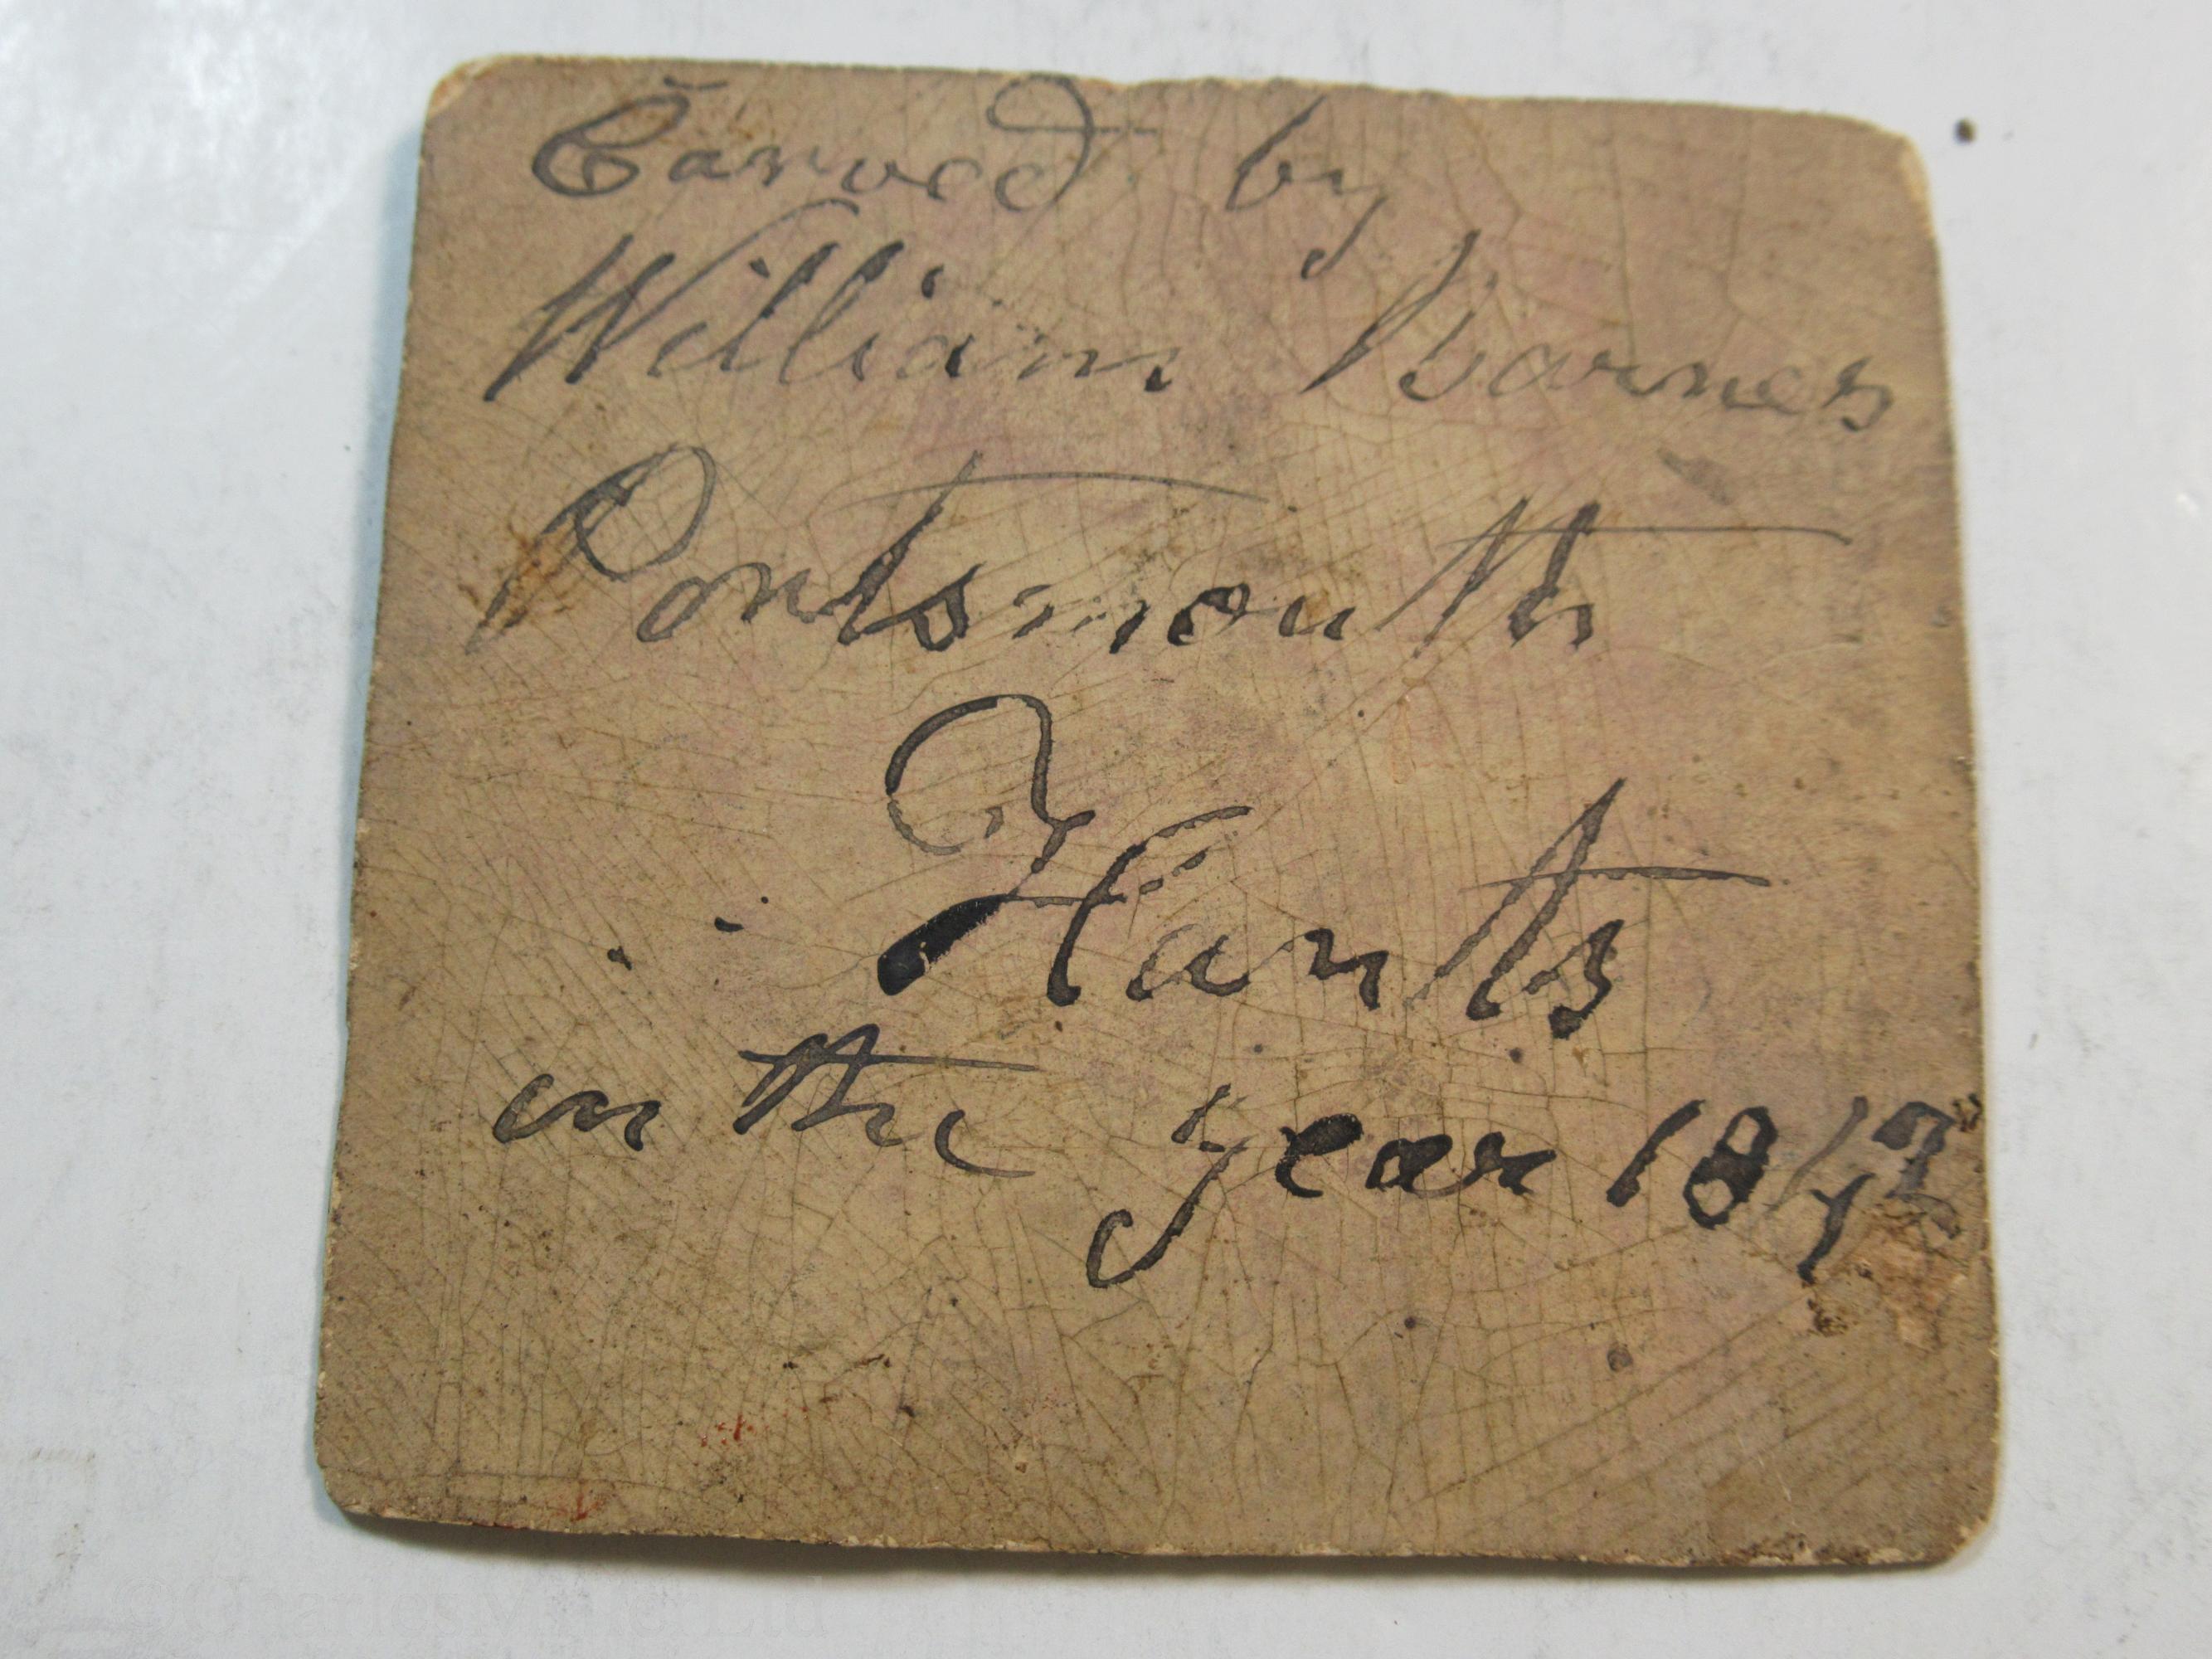 Carved by
William Barnes
Portsmouth
Hants
in the year